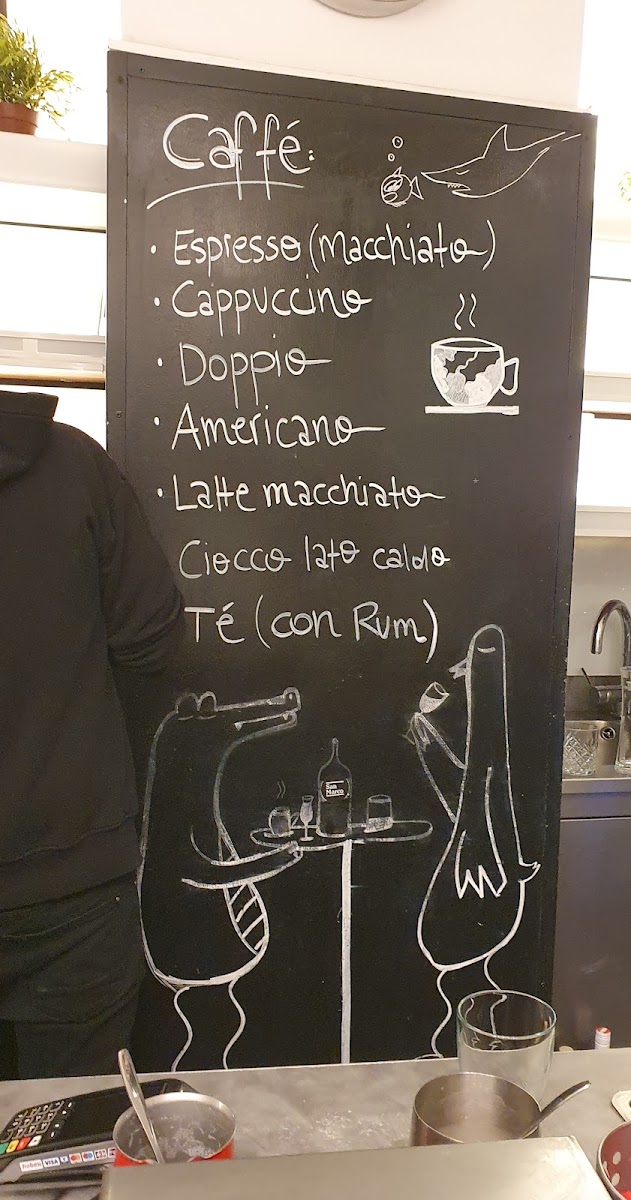 Caffé:
• Espresso (macchiato)
• Cappuccino
• Doppio
• Americano
• Latte macchiato
Ciocco lato caldo
Té (con Rum)
San
Marco
hobex VISA